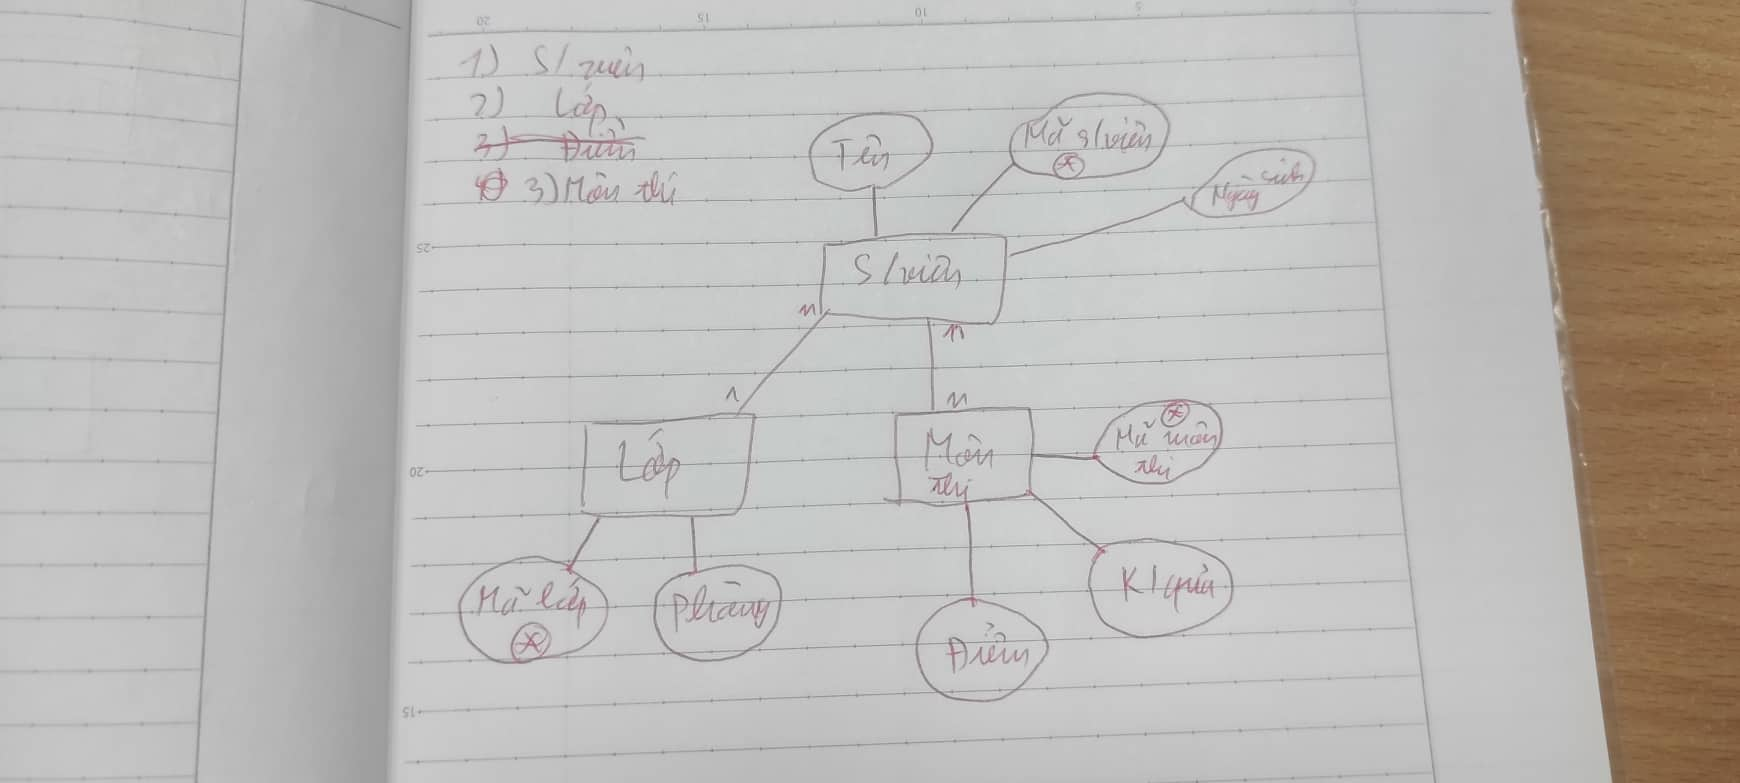 20 15 10 5
1) S/viên
2) Lớp
3) Điểm
3) Môn thi
Tên
Mã s/viên
Ngày sinh
25
S/viên
n
n
1
n
Lớp
Môn
thi
Mã môn
thi
20
Mã lớp
Phòng
K/quả
Điểm
15